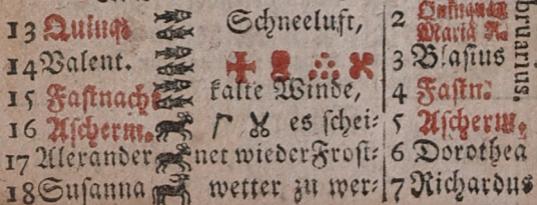 13 Quinq; Schneeluft, 2
Mariä R.
14 Valent. 3 Blasius
15 Fastnacht kalte Winde, 4 Fastn.
16 Ascherm. es schei- 5 Ascherm.
17 Alexander net wieder Frost- 6 Dorothea
18 Susanna wetter zu wer- 7 Richardus
bruarius.